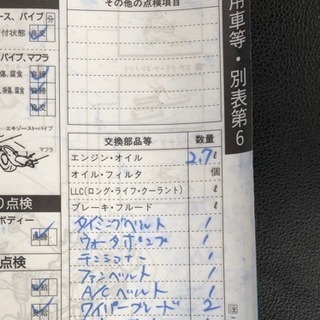 その他の点検項目
ース、パイプ
付状態
パイプ、マフラ
損、腐食
エキゾースト・パイプ
マフラ
の点検
ボディー
点検
交換部品等 数量
エンジン・オイル 2.7 ℓ
オイル・フィルタ 個
LLC(ロング・ライフ・クーラント) ℓ
ブレーキ・フルード ℓ
タイミングベルト 1
ウォータポンプ 1
テンショナー 1
ファンベルト 1
A/Cベルト 1
ワイパーブレード 2
用車等・別表第6